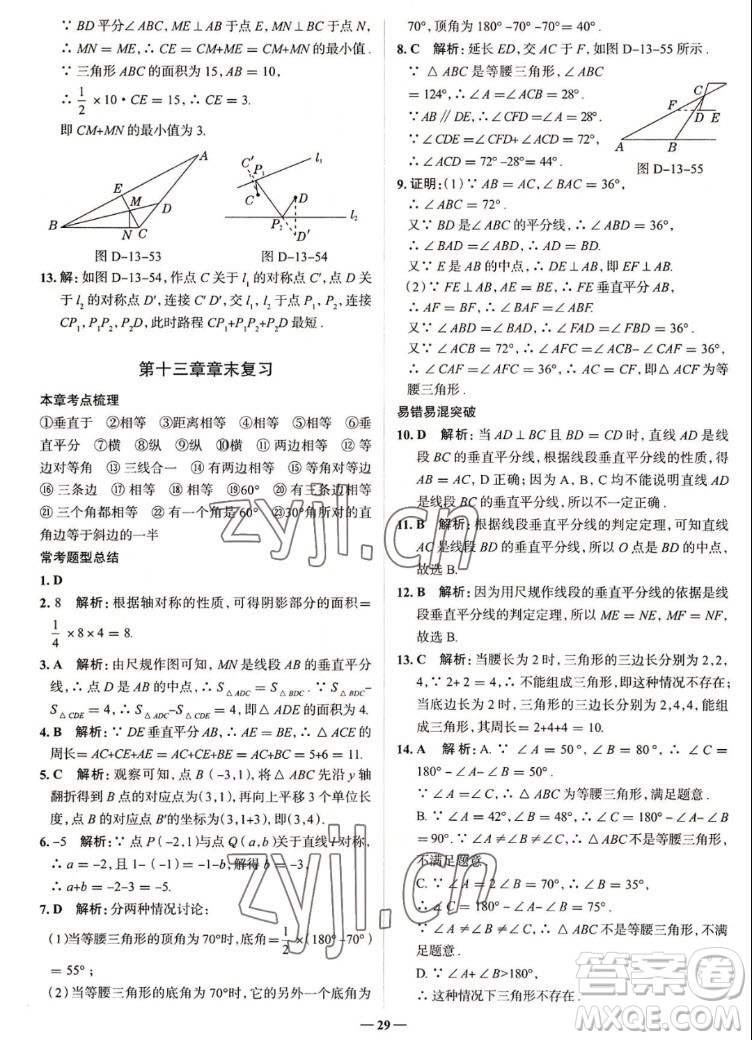 ∵ BD平分∠ABC，ME=MN，
∴ MN = ME，∴ CE = CM+ME = CM+MN的最小值．
∵ 三角形ABC的面积为15，AB=10，
∴ 1/2 ×10·CE=15，∴ CE=3.
即CM+MN的最小值为3.
A
E
M
D
B
N
C
图 D-13-53
C′
P₁
l₁
C
D
P₂
l₂
D′
图 D-13-54
13. 解：如图D-13-54，作点C关于l₁的对称点C′，点D关
于l₂的对称点D′，连接C′D′，交l₁，l₂于点P₁，P₂，连接
CP₁，P₁P₂，P₂D，此时路程CP₁+P₁P₂+P₂D最短．
第十三章章末复习
本章考点梳理
①垂直于 ②相等 ③距离相等 ④相等 ⑥垂
直平分 ⑦横 ⑧纵 ⑨纵 ⑩横 ⑪相等 ⑫等
边对等角 ⑬三线合一 ⑭相等 ⑮相等
⑯三条边 ⑰相等 ⑱相等 ⑲60° ⑳三条边都相等
㉑三个角都相等 ㉒有一个角是60° ㉓30°角所对的直
角边等于斜边的一半
常考题型总结
1. D
2. 8 解析：根据轴对称的性质，可得阴影部分的面积=
1/4 ×8×4=8.
3. A 解析：由尺规作图可知，MN是线段AB的垂直平分
线，∴ 点D是AB的中点，∴ S△ADC=S△BDC．∵ S△BDC-
S△CDE=4，∴ S△ADC-S△CDE=4，即△ADE的面积为4.
4. B 解析：∵ DE垂直平分AB，∴ AE=BE，∴ △ACE的
周长=AC+CE+AE=AC+CE+BE=AC+BC=5+6=11.
5. C 解析：观察可知，点B（-3,1），将△ABC先沿y轴
翻折到第一象限，点B的对应点为(3,1)，再向上平移3个单位长
度，点B的对应点B′的坐标为(3,1+3)，即(3,4).
6. -5 解析：∵ 点P(-2,1)与点Q(a,b)关于直线l对称，
∴ a=-2，且1-(-1)=-1-b，解得b=-3，
∴ a+b=-2-3=-5.
7. D 解析：分两种情况讨论：
(1)当等腰三角形的顶角为70°时，底角=1/2×(180°-70°)
=55°；
(2)当等腰三角形的底角为70°时，它的另外一个底角为
70°，顶角为180°-70°-70°=40°.
8. C 解析：延长ED，交AC于F，如图D-13-55所示．
∵ △ABC是等腰三角形，∠ABC
=124°，∴ ∠A=∠ACB=28°.
∵AB∥DE，∴ ∠CFD=∠A=28°.
∵ ∠CDE=∠CFD+∠ACD=72°，
∴ ∠ACD=72°-28°=44°.
C
F
D E
A
B
图 D-13-55
9. 证明：(1)∵ AB=AC，∠BAC=36°，
∴ ∠ABC=72°.
又∵ BD是∠ABC的平分线，∴ ∠ABD=36°，
∴ ∠BAD=∠ABD，∴ AD=BD.
又∵ E是AB的中点，∴ DE⊥AB，即EF⊥AB.
(2)∵ FE⊥AB，AE=BE，∴ FE垂直平分AB，
∴ AF=BF，∴ ∠BAF=∠ABF.
又∵ ∠ABD=∠BAD，∴ ∠FAD=∠FBD=36°.
又∵ ∠ACB=72°，∴ ∠AFC=∠ACB-∠CAF=36°，
∴ ∠CAF=∠AFC=36°，∴ AC=CF，即△ACF为等
腰三角形．
易错易混突破
10. D 解析：当AD⊥BC且BD=CD时，直线AD是线
段BC的垂直平分线，根据线段垂直平分线的性质，得
AB=AC，D正确；因为A、B、C均不能说明直线
AD是线段BC的垂直平分线，所以不一定正确．
11. B 解析：根据线段垂直平分线的判定定理，可知直线
AC是线段BD的垂直平分线，所以O点是BD的中点，
故选B.
12. B 解析：因为用尺规作线段的垂直平分线的依据是线
段垂直平分线的判定定理，所以ME=NE，MF=NF，
故选B.
13. C 解析：当腰长为2时，三角形的三边长分别为2,2,
4，∵ 2+2=4，∴ 不能组成三角形，即这种情况不存在；
当底边长为2时，三角形的三边长分别为2,4,4，能组
成三角形，其周长=2+4+4=10.
14. A 解析：A.∵ ∠A=50°，∠B=80°，∴ ∠C=
180°-∠A-∠B=50°.
∴ △ABC是等腰三角形，满足题意．
B.∵ ∠A=42°，∠B=48°，∴ ∠C=180°-∠A-∠B
=90°．∵ ∠A≠∠B≠∠C，∴ △ABC不是等腰三角形，
不满足题意．
C.∵ ∠A=2∠B=70°，∴ ∠B=35°，
∴ ∠C=180°-∠A-∠B=75°，
∴ △ABC不是等腰三角形，不满
足题意．
D.∵ ∠A+∠B>180°，
∴ 这种情况下三角形不存在．
29
zyjl.cn
zyjl.cn
答案圈
MXQE.COM